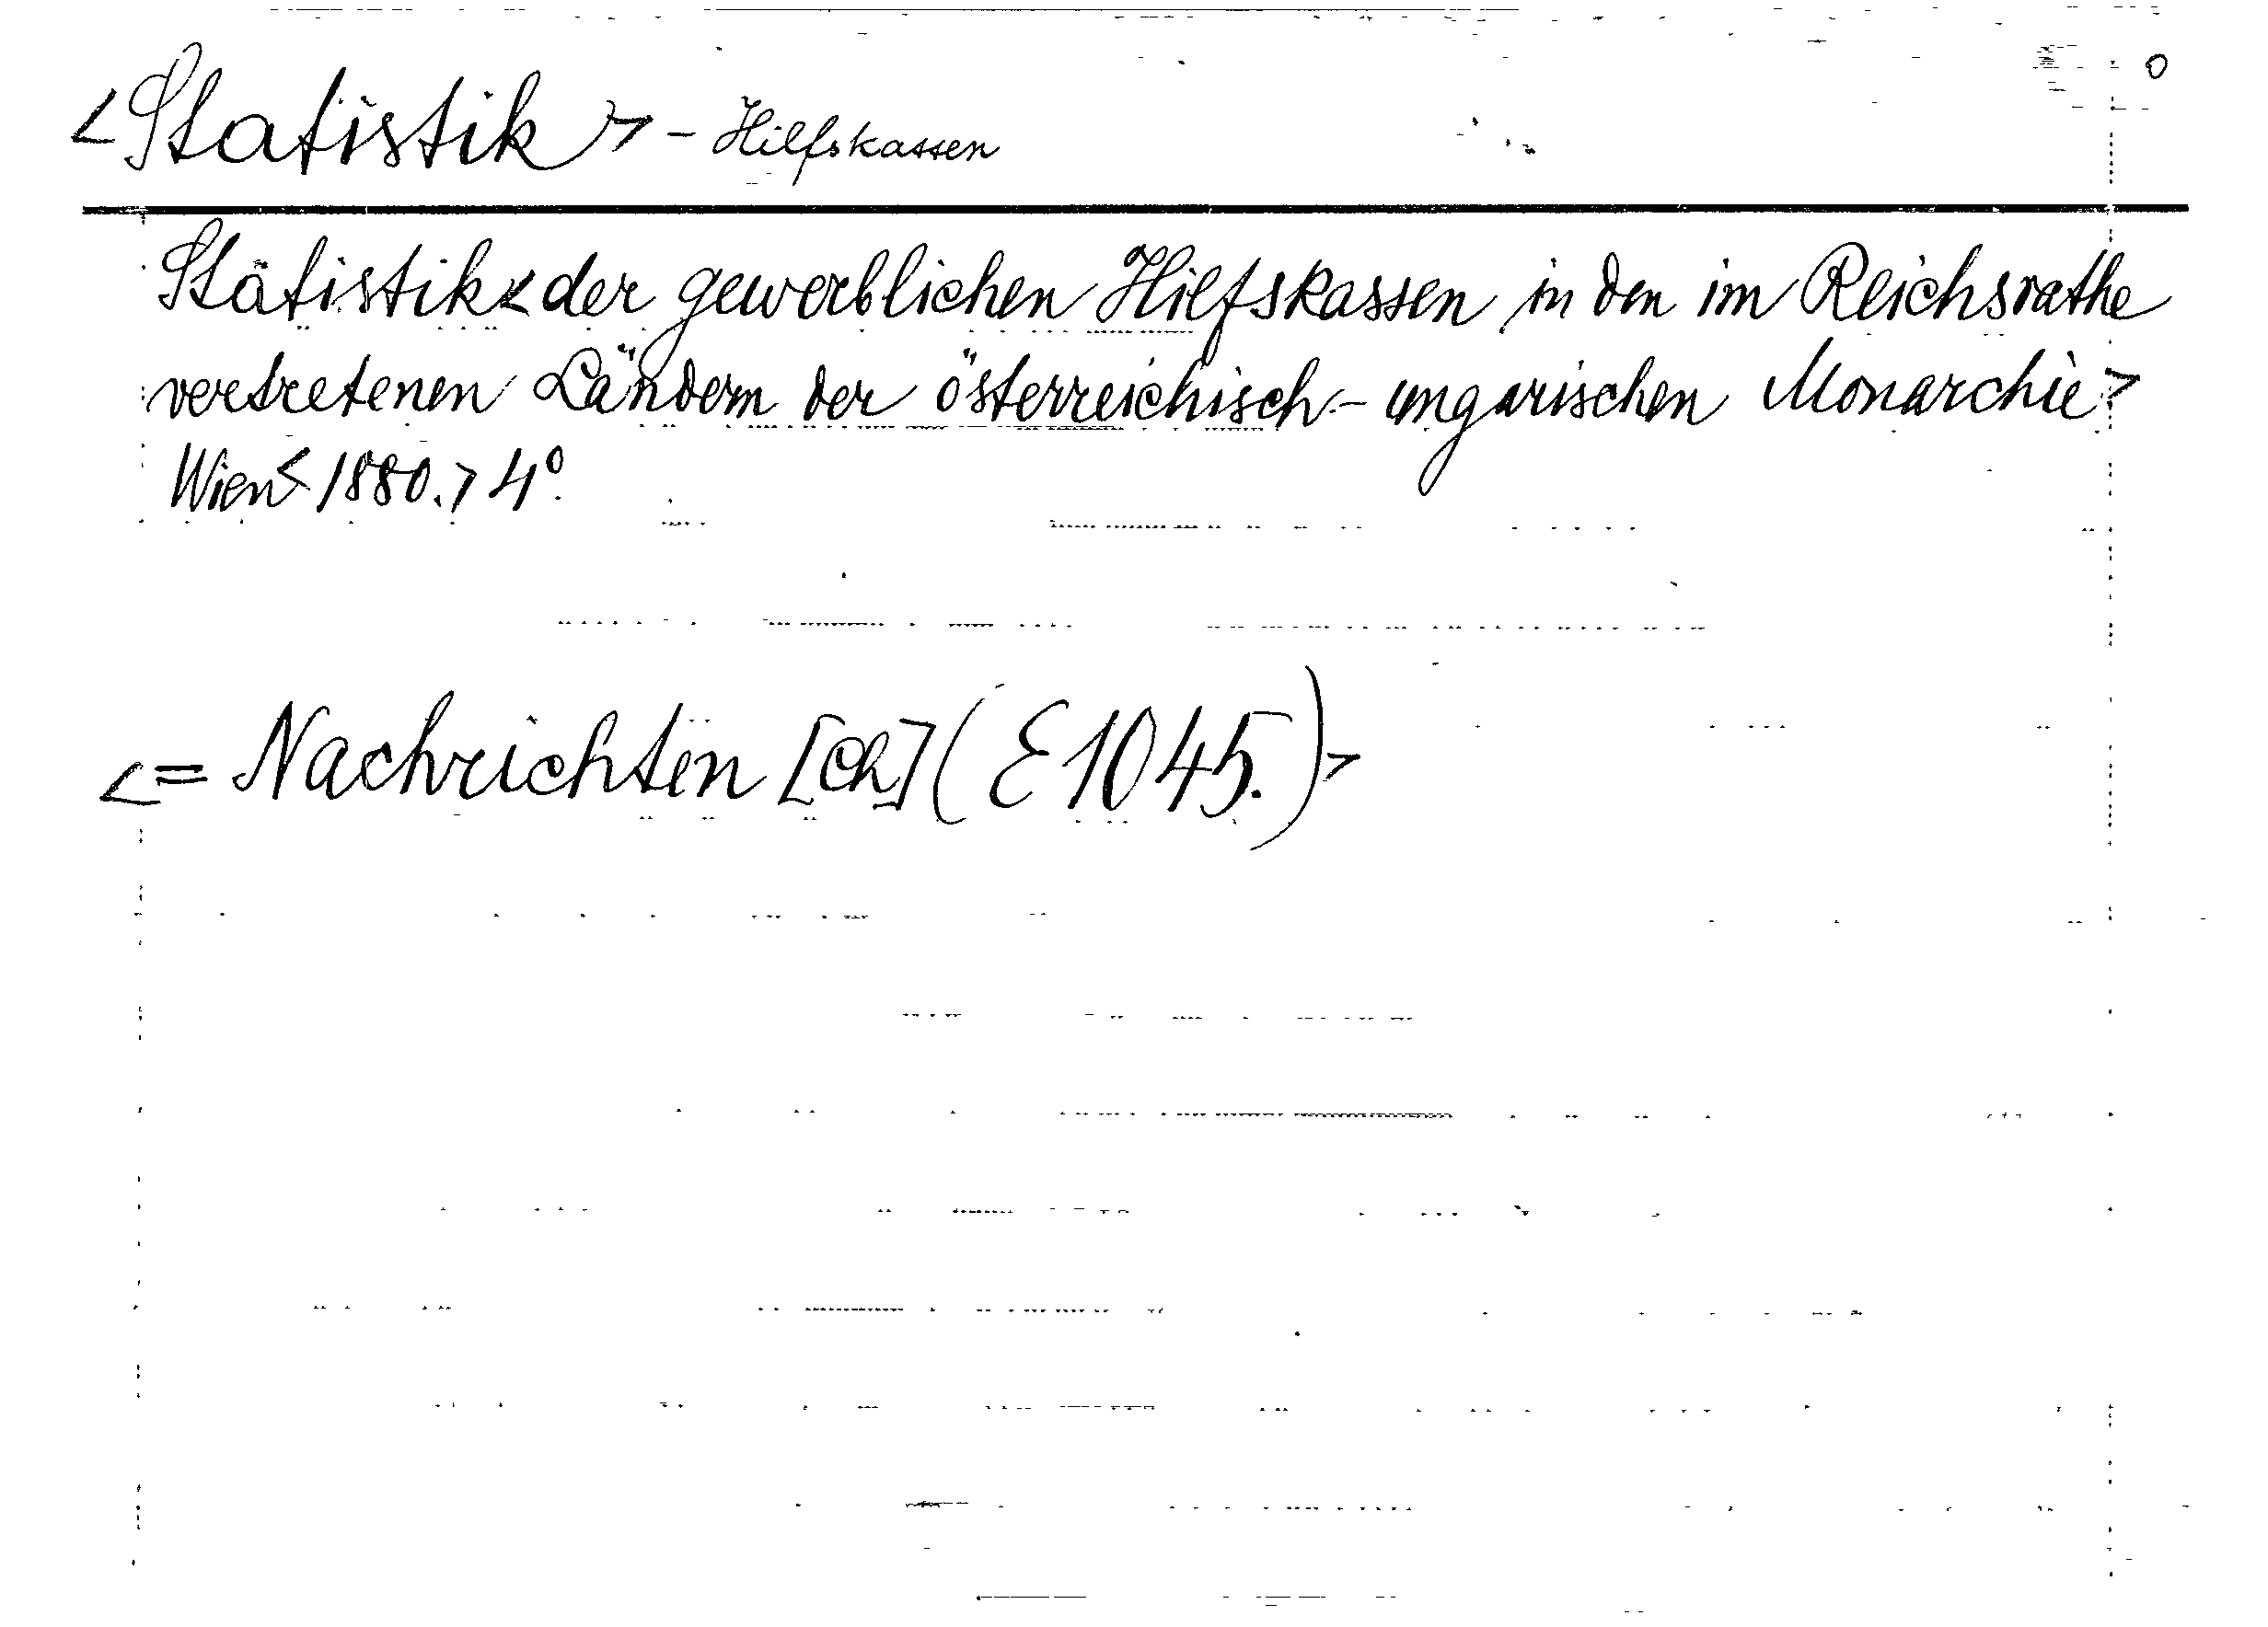 <Statistik> - Hilfskassen
0
Statistik < der gewerblichen Hilfskassen in den im Reichsrathe
vertretenen Ländern der österreichisch-ungarischen Monarchie>
Wien < 1880. > 4°.
<= Nachrichten [Ch] (E 1045.)>